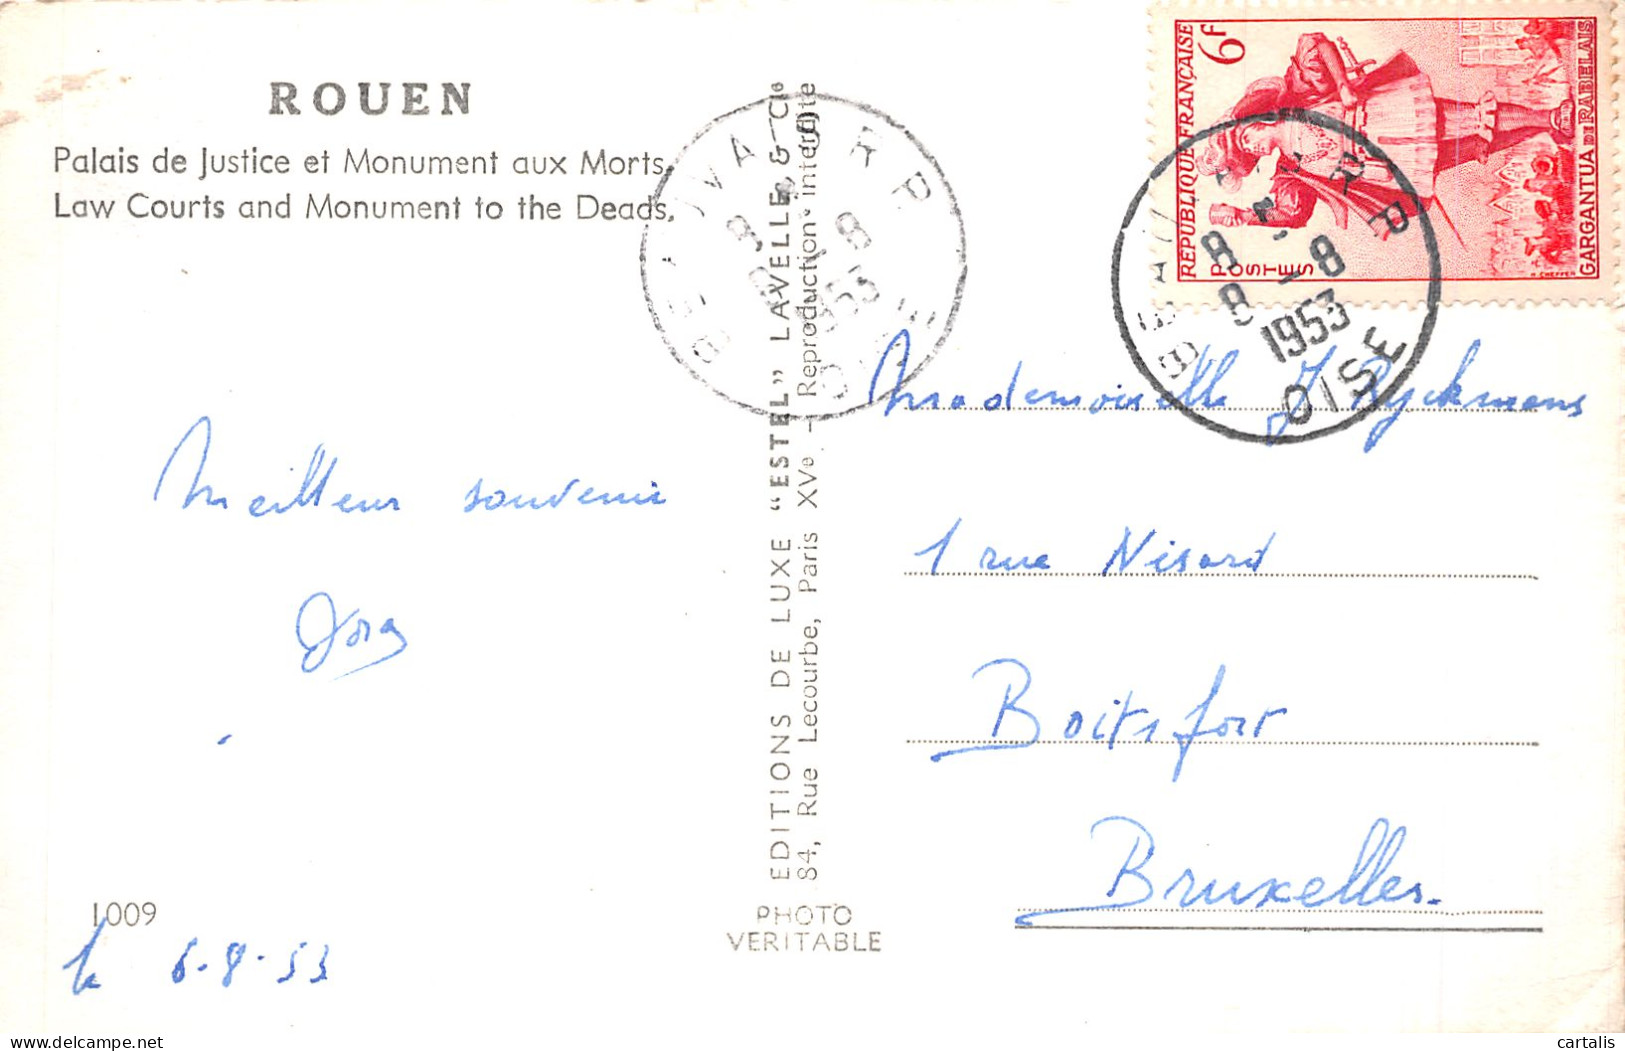 ROUEN
Palais de Justice et Monument aux Morts.
Law Courts and Monument to the Deads.
Meilleur souvenir
le 6-8-53
1009
EDITIONS DE LUXE "ESTEL" LAVELLE & Cie
84, Rue Lecourbe, Paris XVe - Reproduction interdite
PHOTO
VERITABLE
REPUBLIQUE FRANÇAISE
6F
POSTES
GARGANTUA DE RABELAIS
BEAUVAIS R P
8 - 8
1953
OISE
BEAUVAIS R P
8 - 8
1953
OISE
Mademoiselle J Ryckmans
1 rue Nisard
Boitsfort
Bruxelles.
cartalis